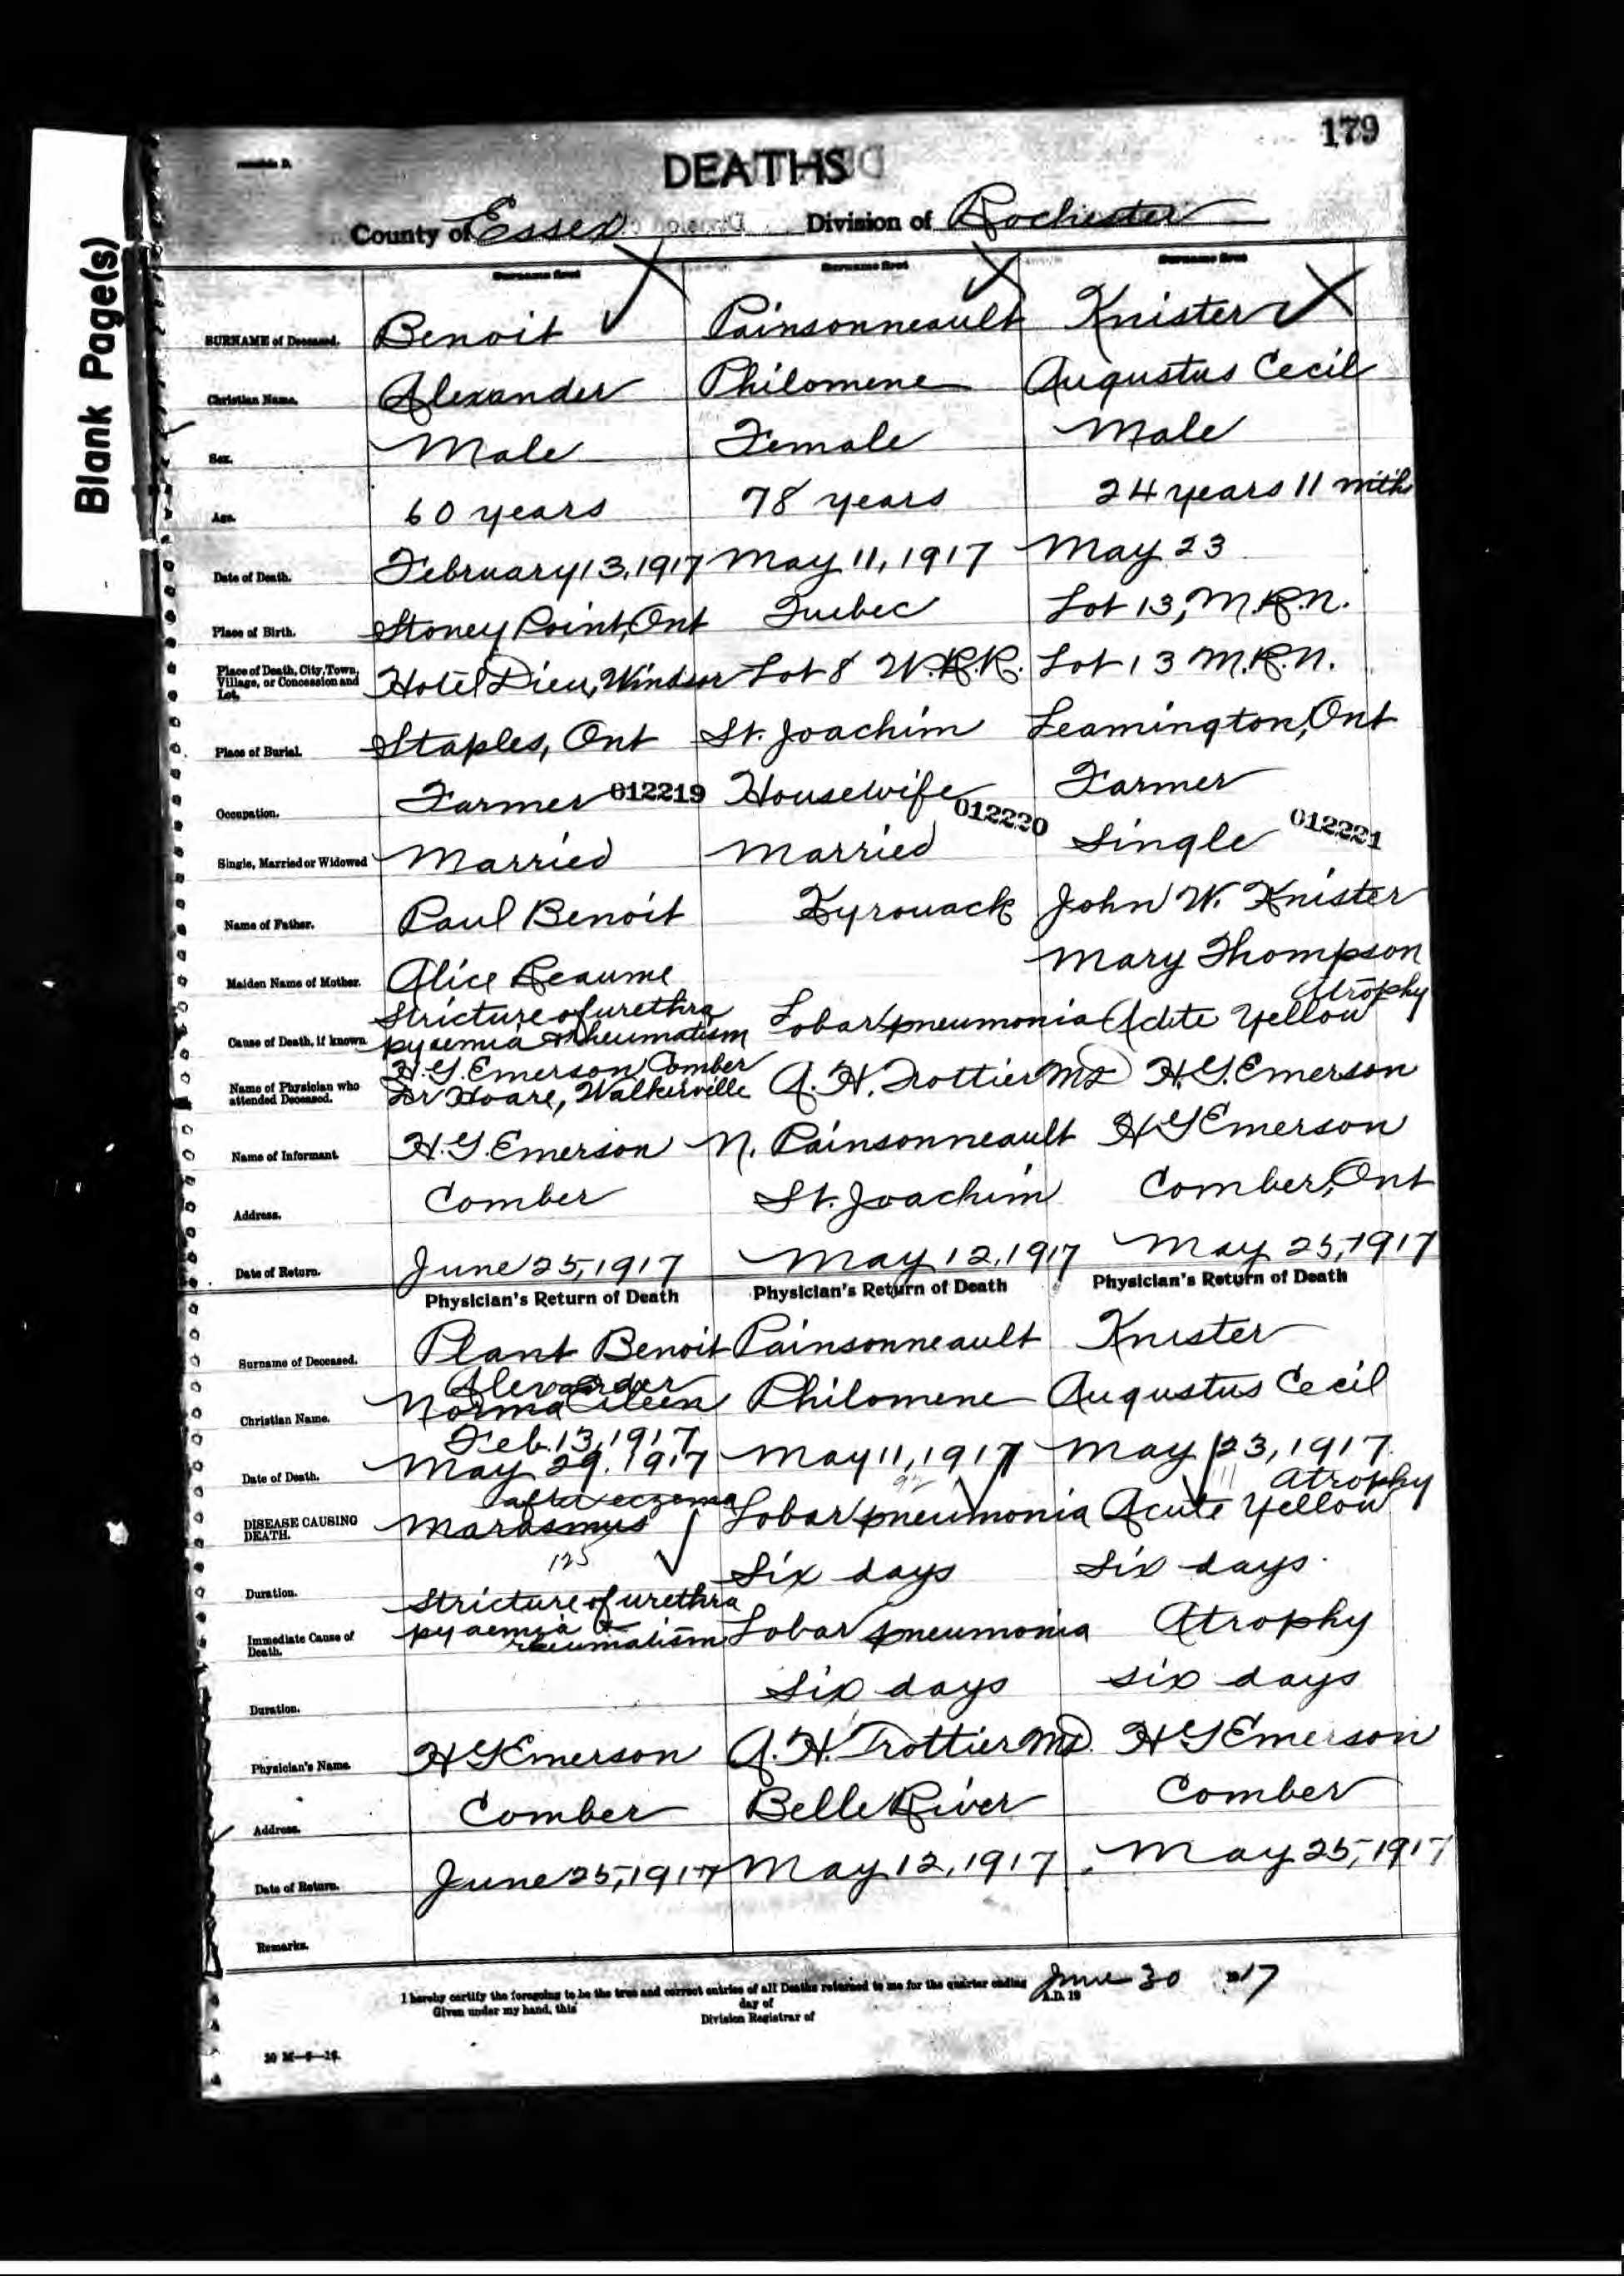 Blank Page(s)
179
DEATHS
County of Essex Division of Rochester
Surname first Surname first Surname first
SURNAME of Deceased. Benoit Painsonneault Knister
Christian Name. Alexander Philomene Augustus Cecil
Sex. Male Female Male
Age. 60 years 78 years 24 years 11 mths
Date of Death. February 13, 1917 May 11, 1917 May 23
Place of Birth. Stoney Point, Ont Quebec Lot 13, M.R.N.
Place of Death, City, Town, Village, or Concession and Lot. Hotel Dieu, Windsor Lot 8 W.R.R. Lot 13 M.R.N.
Place of Burial. Staples, Ont St. Joachim Leamington, Ont
Occupation. Farmer 012219 Housewife 012220 Farmer 012221
Single, Married or Widowed Married Married Single
Name of Father. Paul Benoit Kyrouack John W. Knister
Maiden Name of Mother. Alice Reaume Mary Thompson
Cause of Death, if known. Stricture of urethra pyaemia & rheumatism Lobar pneumonia Acute Yellow Atrophy
Name of Physician who attended Deceased. H.G. Emerson Comber Dr Hoare, Walkerville A. H. Trottier MD H.G. Emerson
Name of Informant. H.G. Emerson N. Painsonneault H G Emerson
Address. Comber St. Joachim Comber, Ont
Date of Return. June 25, 1917 May 12, 1917 May 25, 1917
Physician's Return of Death Physician's Return of Death Physician's Return of Death
Surname of Deceased. Plant Benoit Painsonneault Knister
Christian Name. Alexander Norma Eileen Philomene Augustus Cecil
Date of Death. Feb. 13, 1917 May 29. 1917 May 11, 1917 May 23, 1917
DISEASE CAUSING DEATH. Marasmus after eczema Lobar pneumonia Acute Yellow Atrophy
125
Duration. Six days Six days
Immediate Cause of Death. Stricture of urethra pyaemia & rheumatism Lobar pneumonia Atrophy
Duration. Six days six days
Physician's Name. H G Emerson A. H. Trottier MD. H G Emerson
Address. Comber Belle River Comber
Date of Return. June 25, 1917 May 12, 1917 May 25, 1917
Remarks.
I hereby certify the foregoing to be the true and correct entries of all Deaths returned to me for the quarter ending June 30 1917
Given under my hand, this day of A.D. 19
Division Registrar of